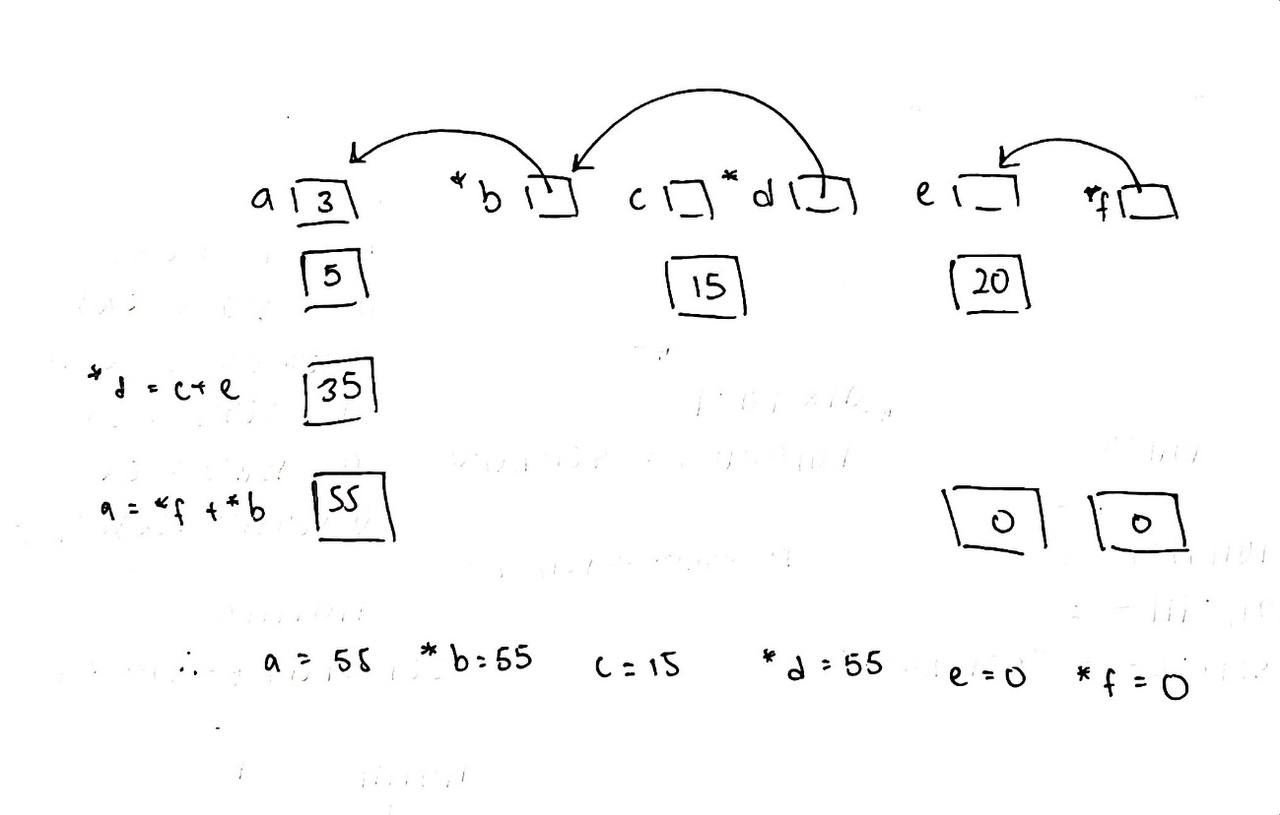 a 3 *b c *d e *f
5 15 20
*d = c+e 35
a = *f + *b 55 0 0
∴ a = 55 *b=55 c=15 *d=55 e=0 *f=0